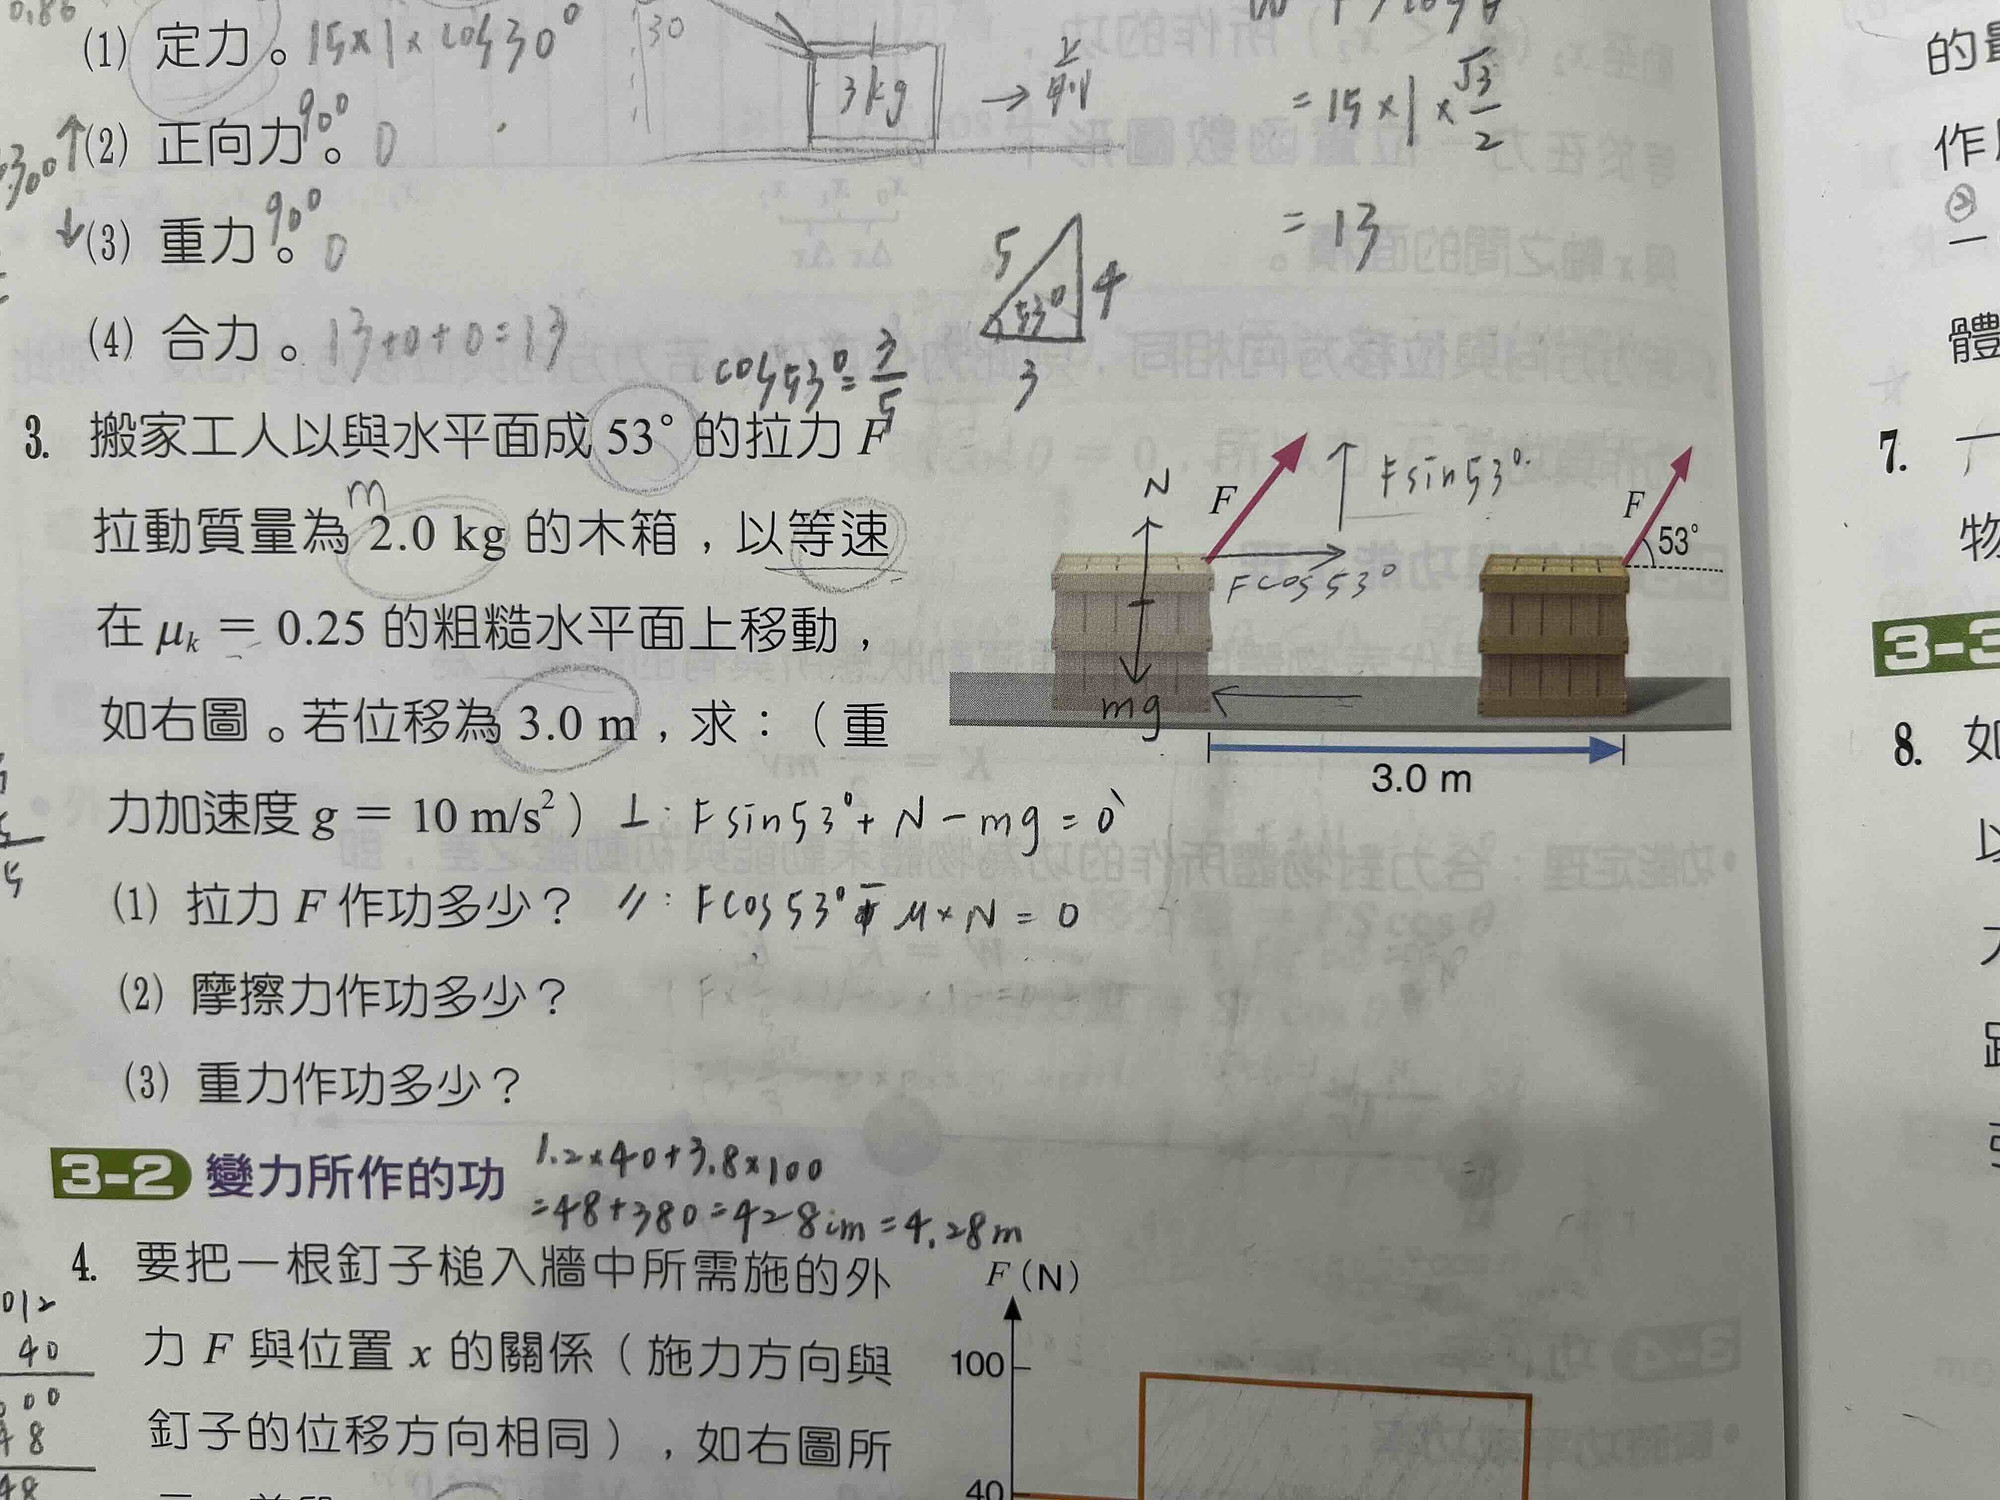 0.86
(1) 定力。15×1×cos30°
30
3kg
→ 前
= 15×1×√3/2
(2) 正向力。90° 0
(3) 重力。90° 0
= 13
5
53°
4
3
(4) 合力。13+0+0=13
cos53°=3/5
3. 搬家工人以與水平面成 53° 的拉力 F
m
拉動質量為 2.0 kg 的木箱，以等速
在 μk = 0.25 的粗糙水平面上移動，
如右圖。若位移為 3.0 m，求：（重
力加速度 g = 10 m/s²）⊥: Fsin53°+N-mg=0
(1) 拉力 F 作功多少？ //: Fcos53°-μ×N=0
(2) 摩擦力作功多少？
(3) 重力作功多少？
N
F
Fsin53°
Fcos53°
mg
F
53°
3.0 m
3-2 變力所作的功
1.2×40+3.8×100
=48+380=428cm=4.28m
4. 要把一根釘子槌入牆中所需施的外
力 F 與位置 x 的關係（施力方向與
釘子的位移方向相同），如右圖所
F(N)
100
40
012
40
00
48
48
的
作
②
一
體
7.
物
3-3
8. 如
以